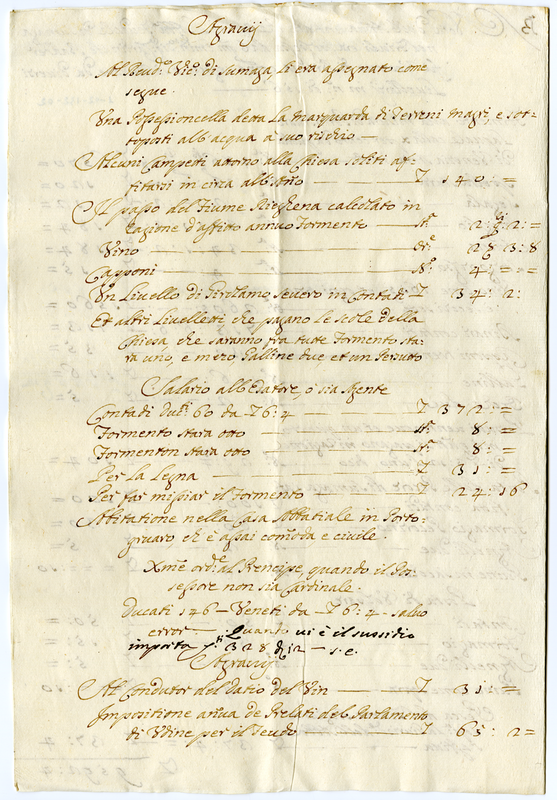 Agravij
Al Revd.o Vic.o di Sumaga, li era assegnato come
segue.
Una Possessioncella detta La marquarda di Terreni magri, e sot=
toposti all'acqua a suo rischio —
Alcuni Campetti atorno alla Chiesa soliti af=
fitarsi in circa all'Anno — £ 140: =
Il passo del Fiume Reghena calcolato in
ragione d'affitto annuo Formento — St.a 2: 2: =
Vino — 2 3: 8
Capponi — N.o 4: = =
Un Livello di Girolamo Severo in Contadi £ 34: 2:
Et altri Livelletti che pagano le scole della
Chiesa, che saranno fra tutte Formento sta=
ra uno, e mezo, Galline due, et un Persutto
Salario all'Esatore, ò sia Agente
Contadi Duc.ti 60 da £ 6: 4 — £ 372: =
Formento stara otto — St.a 8: =
Formenton stara otto — St.a 8: =
Per La Legna — £ 31: =
Per far missiar il Formento — £ 24: 16
Abitatione nella Casa Abbatiale in Porto=
gruaro ch'è assai comoda e civile.
Xme ord.e al Prencipe, quando il Pos=
sessore non sia Cardinale.
Ducati 546 — Veneti da £ 6: 4 - salvo
error — : Quanto vi è il sussidio
importa 328 12 — s. e.
Agravij
Al Condutor del Datio del Vin — £ 31: =
Impositione de Prelati del Parlamento
di Udine per il Feudo — £ 65: 2 =